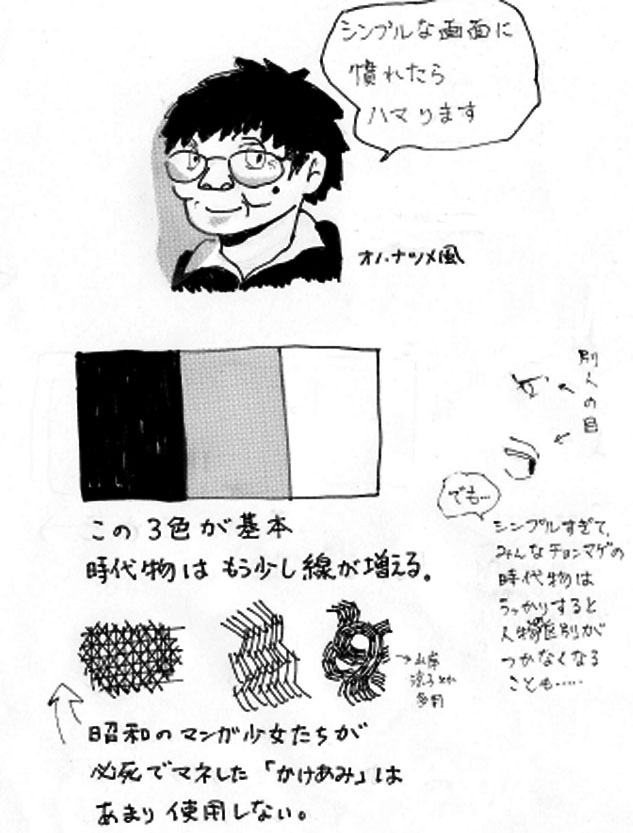 シンプルな画面に
慣れたら
ハマります
オノ・ナツメ風
別人の目
でも…
シンプルすぎて、
みんなチョンマゲの
時代物は
うっかりすると
人物区別が
つかなくなる
ことも……
この3色が基本
時代物はもう少し線が増える。
→山岸
涼子とか
多用
昭和のマンガ少女たちが
必死でマネした「かけあみ」は
あまり使用しない。